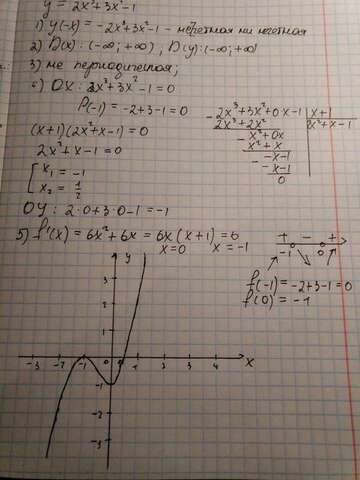 y = 2x³+3x²-1
1) y(-x) = -2x³+3x²-1 - не чётная ни нечетная
2) D(x): (-∞; +∞), D(y): (-∞; +∞)
3) не периодическая;
OX: 2x³+3x²-1=0
P(-1) = -2+3-1=0
(x+1)(2x²+x-1)=0
2x²+x-1=0
x₁ = -1
x₂ = 1/2
2x³+3x²+0x-1 | x+1
2x³+2x² | 2x²+x-1
x²+0x
x²+x
-x-1
-x-1
0
OY: 2·0+3·0-1=-1
5) f'(x) = 6x²+6x = 6x(x+1)=0
x=0 x=-1
+ - +
-1 0
f(-1)=-2+3-1=0
f(0)=-1
y
3
2
1
-3 -2 -1 0 1 2 3 4 x
-1
-2
-3